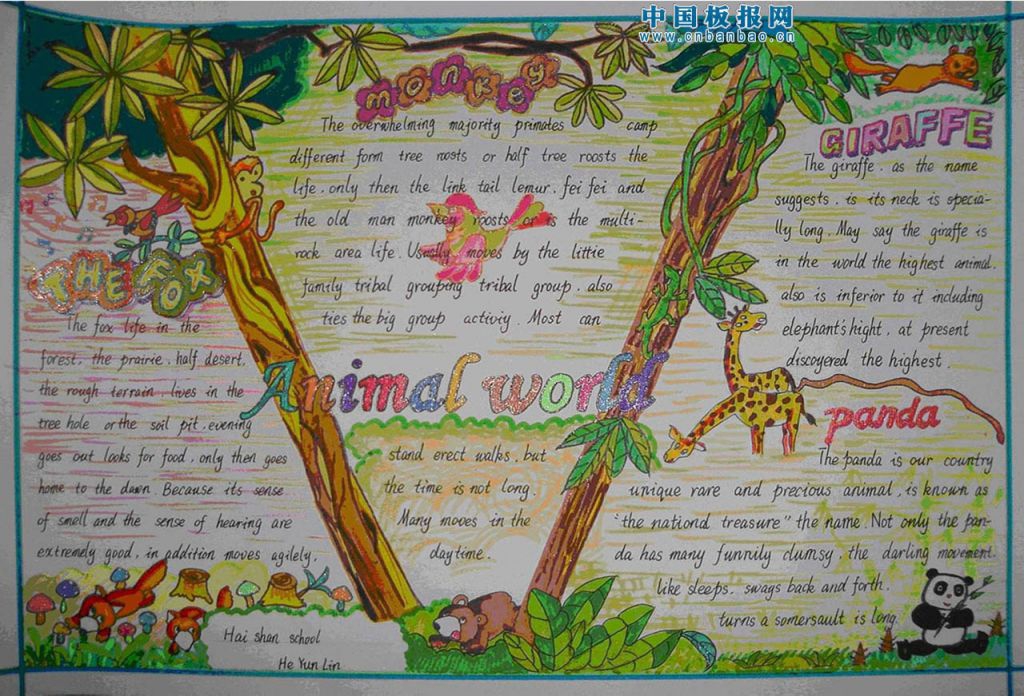 中国板报网
www.cnbanbao.cn
monkey
The overwhelming majority primates camp
different form tree roosts or half tree roosts the
life. only then the link tail lemur. fei fei and
the old man monkey roosts or is the multi-
rock area life. Usually moves by the little
family tribal grouping tribal group. also
ties the big group activiy. Most can
stand erect walks, but
the time is not long.
Many moves in the
daytime.
Animal world
THE FOX
The fox life in the
forest, the prairie, half desert,
the rough terrain, lives in the
tree hole or the soil pit. evening
goes out looks for food, only then goes
home to the dawn. Because its sense
of smell and the sense of hearing are
extremely good, in addition moves agilely.
Hai shan school
He Yun Lin
GIRAFFE
The giraffe. as the name
suggests. is its neck is specia-
lly long. May say the giraffe is
in the world the highest animal.
also is inferior to it including
elephant's hight. at present
discoyered the highest.
panda
The panda is our country
unique rare and precious animal, is known as
"the nationd treasure" the name. Not only the pan-
da has many funnily clumsy, the darling movement.
like sleeps. sways back and forth.
turns a somersault is long.